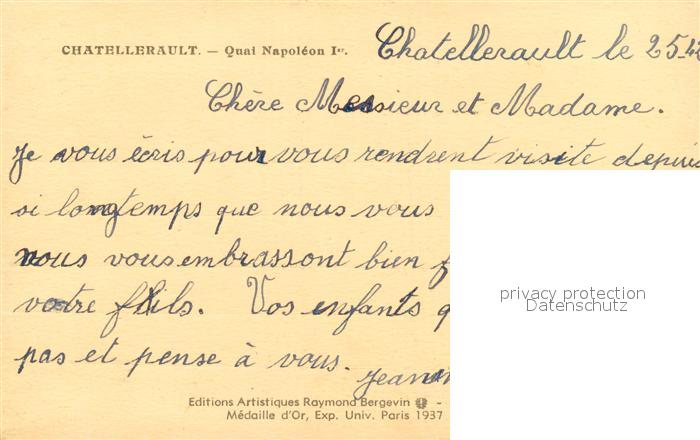 CHATELLERAULT. — Quai Napoléon Ier.
Chatellerault le 25-42
Chère Messieur et Madame.
Je vous écris pour vous rendrent visite depuis
si longtemps que nous vous
nous vous embrassont bien f
votre fils. Vos enfants q
pas et pense à vous.
Jeann
privacy protection
Datenschutz
Editions Artistiques Raymond Bergevin -
Médaille d'Or, Exp. Univ. Paris 1937